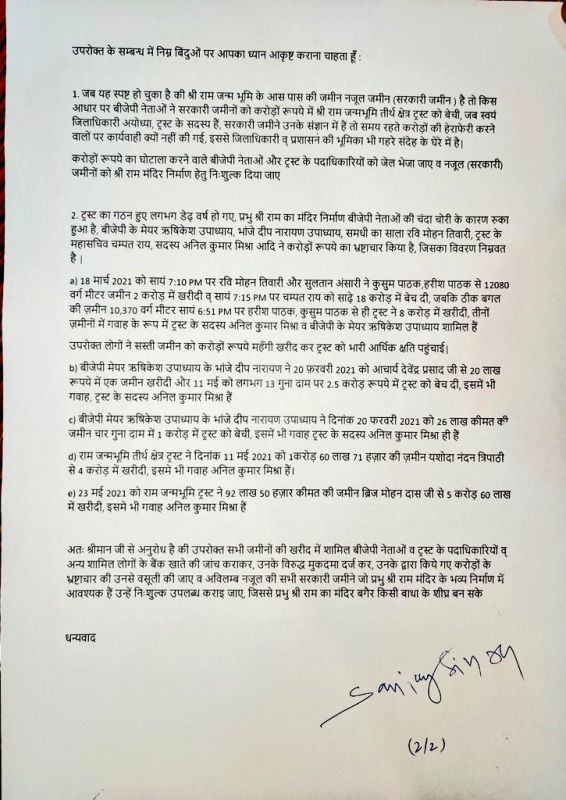 उपरोक्त के सम्बन्ध में निम्न बिंदुओं पर आपका ध्यान आकृष्ट कराना चाहता हूँ :
1. जब यह स्पष्ट हो चुका है की श्री राम जन्म भूमि के आस पास की जमीन नजूल जमीन (सरकारी जमीन ) है तो किस
आधार पर बीजेपी नेताओं ने सरकारी जमीनों को करोड़ों रूपये में श्री राम जन्मभूमि तीर्थ क्षेत्र ट्रस्ट को बेची, जब स्वयं
जिलाधिकारी अयोध्या, ट्रस्ट के सदस्य हैं, सरकारी जमीने उनके संज्ञान में हैं तो समय रहते करोड़ों की हेराफेरी करने
वालों पर कार्यवाही क्यों नहीं की गई, इससे जिलाधिकारी व् प्रशासन की भूमिका भी गहरे संदेह के घेरे में है।
करोड़ों रूपये का घोटाला करने वाले बीजेपी नेताओं और ट्रस्ट के पदाधिकारियों को जेल भेजा जाए व नजूल (सरकारी)
जमीनों को श्री राम मंदिर निर्माण हेतु निःशुल्क दिया जाए
2. ट्रस्ट का गठन हुए लगभग डेढ़ वर्ष हो गए, प्रभु श्री राम का मंदिर निर्माण बीजेपी नेताओं की चंदा चोरी के कारण रुका
हुआ है, बीजेपी के मेयर ऋषिकेश उपाध्याय, भांजे दीप नारायण उपाध्याय, समधी का साला रवि मोहन तिवारी, ट्रस्ट के
महासचिव चम्पत राय, सदस्य अनिल कुमार मिश्रा आदि ने करोड़ों रूपये का भ्रष्टाचार किया है, जिसका विवरण निम्नवत
है |
a) 18 मार्च 2021 को सायं 7:10 PM पर रवि मोहन तिवारी और सुलतान अंसारी ने कुसुम पाठक,हरीश पाठक से 12080
वर्ग मीटर जमीन 2 करोड़ में खरीदी व् सायं 7:15 PM पर चम्पत राय को साढ़े 18 करोड़ में बेच दी, जबकि ठीक बगल
की ज़मीन 10,370 वर्ग मीटर सायं 6:51 PM पर हरीश पाठक, कुसुम पाठक से ही ट्रस्ट ने 8 करोड़ में खरीदी, तीनों
ज़मीनों में गवाह के रूप में ट्रस्ट के सदस्य अनिल कुमार मिश्रा व बीजेपी के मेयर ऋषिकेश उपाध्याय शामिल हैं
उपरोक्त लोगों ने सस्ती जमीन को करोड़ों रूपये महँगी खरीद कर ट्रस्ट को भारी आर्थिक क्षति पहुंचाई|
b) बीजेपी मेयर ऋषिकेश उपाध्याय के भांजे दीप नारायण ने 20 फ़रवरी 2021 को आचार्य देवेंद्र प्रसाद जी से 20 लाख
रूपये में एक जमीन खरीदी और 11 मई को लगभग 13 गुना दाम पर 2.5 करोड़ रूपये में ट्रस्ट को बेच दी, इसमें भी
गवाह, ट्रस्ट के सदस्य अनिल कुमार मिश्रा हैं
c) बीजेपी मेयर ऋषिकेश उपाध्याय के भांजे दीप नारायण उपाध्याय ने दिनांक 20 फरवरी 2021 को 26 लाख कीमत की
जमीन चार गुना दाम में 1 करोड़ में ट्रस्ट को बेची, इसमें भी गवाह ट्रस्ट के सदस्य अनिल कुमार मिश्रा ही हैं
d) राम जन्मभूमि तीर्थ क्षेत्र ट्रस्ट ने दिनांक 11 मई 2021 को 1करोड़ 60 लाख 71 हज़ार की ज़मीन यशोदा नंदन त्रिपाठी
से 4 करोड़ में खरीदी, इसमे भी गवाह अनिल कुमार मिश्रा हैं।
e) 23 मई 2021 को राम जन्मभूमि ट्रस्ट ने 92 लाख 50 हज़ार कीमत की जमीन ब्रिज मोहन दास जी से 5 करोड़ 60 लाख
में खरीदी, इसमे भी गवाह अनिल कुमार मिश्रा हैं
अतः श्रीमान जी से अनुरोध है की उपरोक्त सभी जमीनों की खरीद में शामिल बीजेपी नेताओं व ट्रस्ट के पदाधिकारियों व्
अन्य शामिल लोगों के बैंक खाते की जांच कराकर, उनके विरुद्ध मुकदमा दर्ज कर, उनके द्वारा किये गए करोड़ों के
भ्रष्टाचार की उनसे वसूली की जाए व अविलम्ब नजूल की सभी सरकारी जमीने जो प्रभु श्री राम मंदिर के भव्य निर्माण में
आवश्यक हैं उन्हें निःशुल्क उपलब्ध कराइ जाए, जिससे प्रभु श्री राम का मंदिर बगैर किसी बाधा के शीघ्र बन सके
धन्यवाद
Sanjay Singh
(2/2)